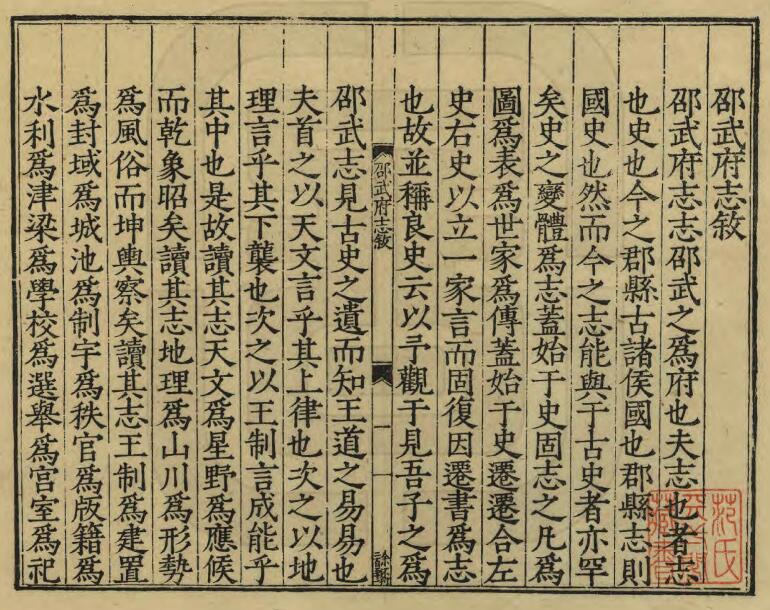 邵武府志敘
邵武府志志邵武之為府也夫志也者志
也史也今之郡縣古諸侯國也郡縣志則
國史也然而今之志能與于古史者亦罕
矣史之變體為志蓋始于史固志之凡為
圖為表為世家為傳蓋始于史遷遷合左
史右史以立一家言而固復因遷書為志
也故並稱良史云以予觀于見吾子之為
邵武府志敘
一
邵武志見古史之遺而知王道之易易也
夫首之以天文言乎其上律也次之以地
理言乎其下襲也次之以王制言成能乎
其中也是故讀其志天文為星野為應候
而乾象昭矣讀其志地理為山川為形勢
為風俗而坤輿察矣讀其志王制為建置
為封域為城池為制宇為秩官為版籍為
水利為津梁為學校為選舉為宮室為祀
范氏